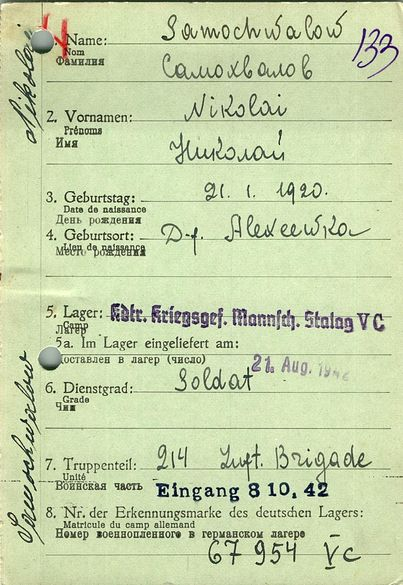 133
1. Name: Samochwalow
Nom
Фамилия Самохвалов
2. Vornamen: Nikolai
Prénoms
Имя Николай
3. Geburtstag: 21. 1. 1920.
Date de naissance
День рождения
4. Geburtsort: D-f. Alexeewka
Lieu de naissance
Место рождения
5. Lager: Kdtr. Kriegsgef. Mannsch. Stalag V C
Camp
Лагерь
5a. Im Lager eingeliefert am:
доставлен в лагер (число) 21. Aug. 1942
6. Dienstgrad: Soldat
Grade
Чин
7. Truppenteil: 214 Luft. Brigade
Unité
Воинская часть Eingang 8 10. 42
8. Nr. der Erkennungsmarke des deutschen Lagers:
Matricule du camp allemand
Номер военнопленного в германском лагере
67 954 Vc
Nikolai
Samochwalow